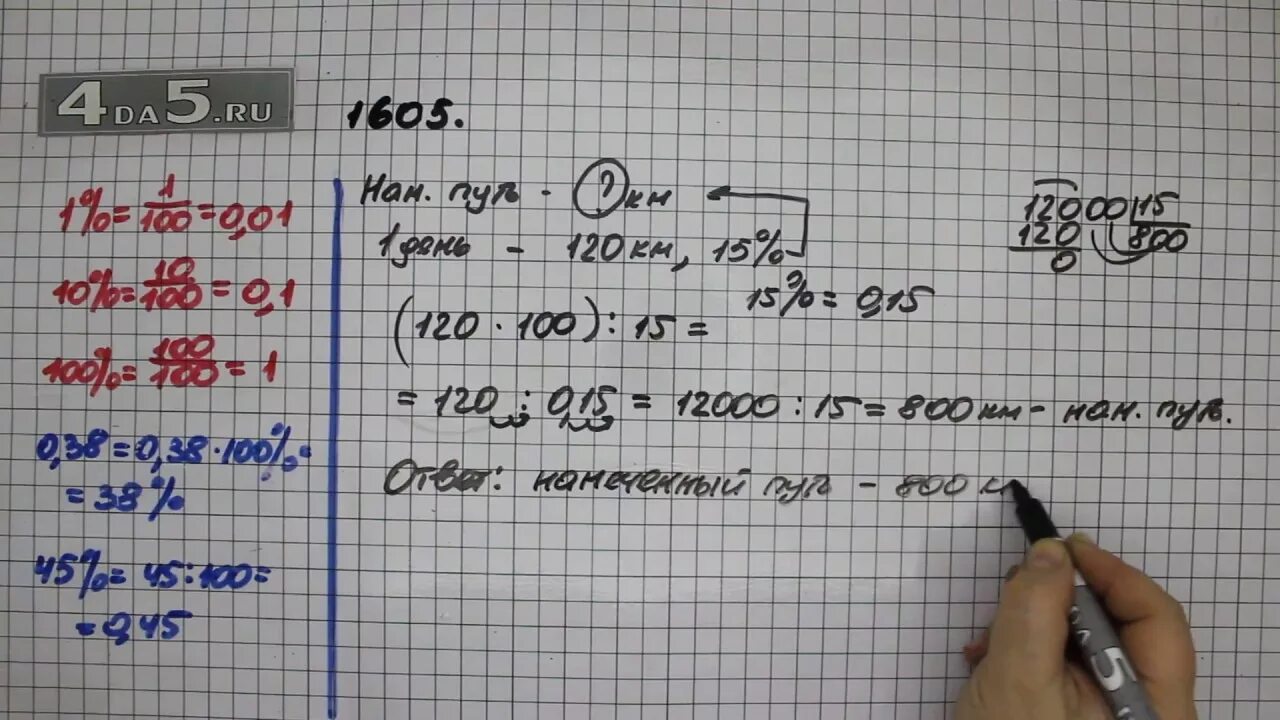 4DA5.RU
1605.
1% = 1/100 = 0,01
10% = 10/100 = 0,1
100% = 100/100 = 1
0,38 = 0,38 · 100% =
= 38%
45% = 45 : 100 =
= 0,45
Нам. путь - ? км
1 день - 120 км, 15%
15% = 0,15
(120 · 100) : 15 =
= 120 : 0,15 = 12000 : 15 = 800 км - нам. путь.
Ответ: намеченный путь - 800 км
12000 15
120 800
0
5